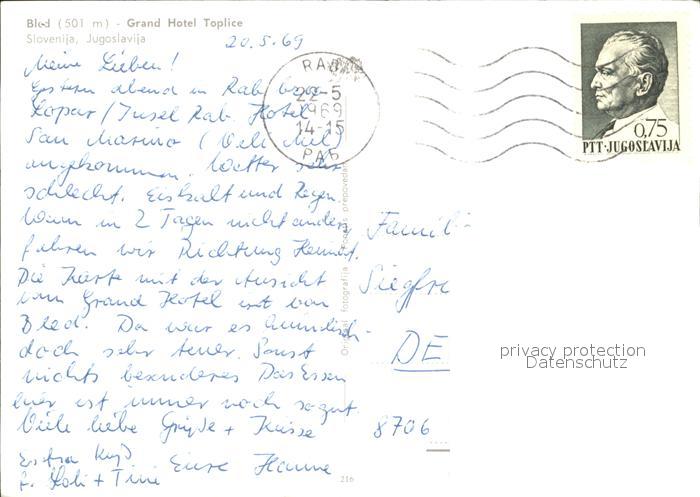 Bled (501 m) - Grand Hotel Toplice
Slovenija, Jugoslavija
20.5.69
Meine Lieben!
Gestern abend in Rab bzw.
Lopar / Insel Rab. Hotel
San Marino (Veli Mel)
angekommen. Wetter sehr
schlecht. Eiskalt und Regen.
Wenn in 2 Tagen nicht anders
fahren wir Richtung Heimat.
Die Karte mit der Ansicht
vom Grand Hotel ist von
Bled. Da war es
doch sehr teuer. Sonst
nichts besonderes Das Essen
hier ist immer noch so gut.
Viele liebe Grüße + Küsse
Eure Hanne
Extra Kuß
f. + Tini
RAB
22-5
1969
14-15
РАБ
0,75
PTT·JUGOSLAVIJA
Original fotografija
Pogatis prepovedan
Famili
Siegfr
DE
8706
216
privacy protection
Datenschutz